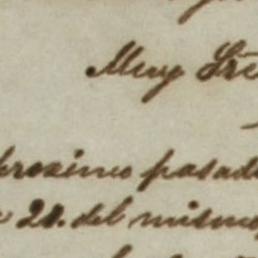 Muy Sre
proximo pasado
21. del mismo